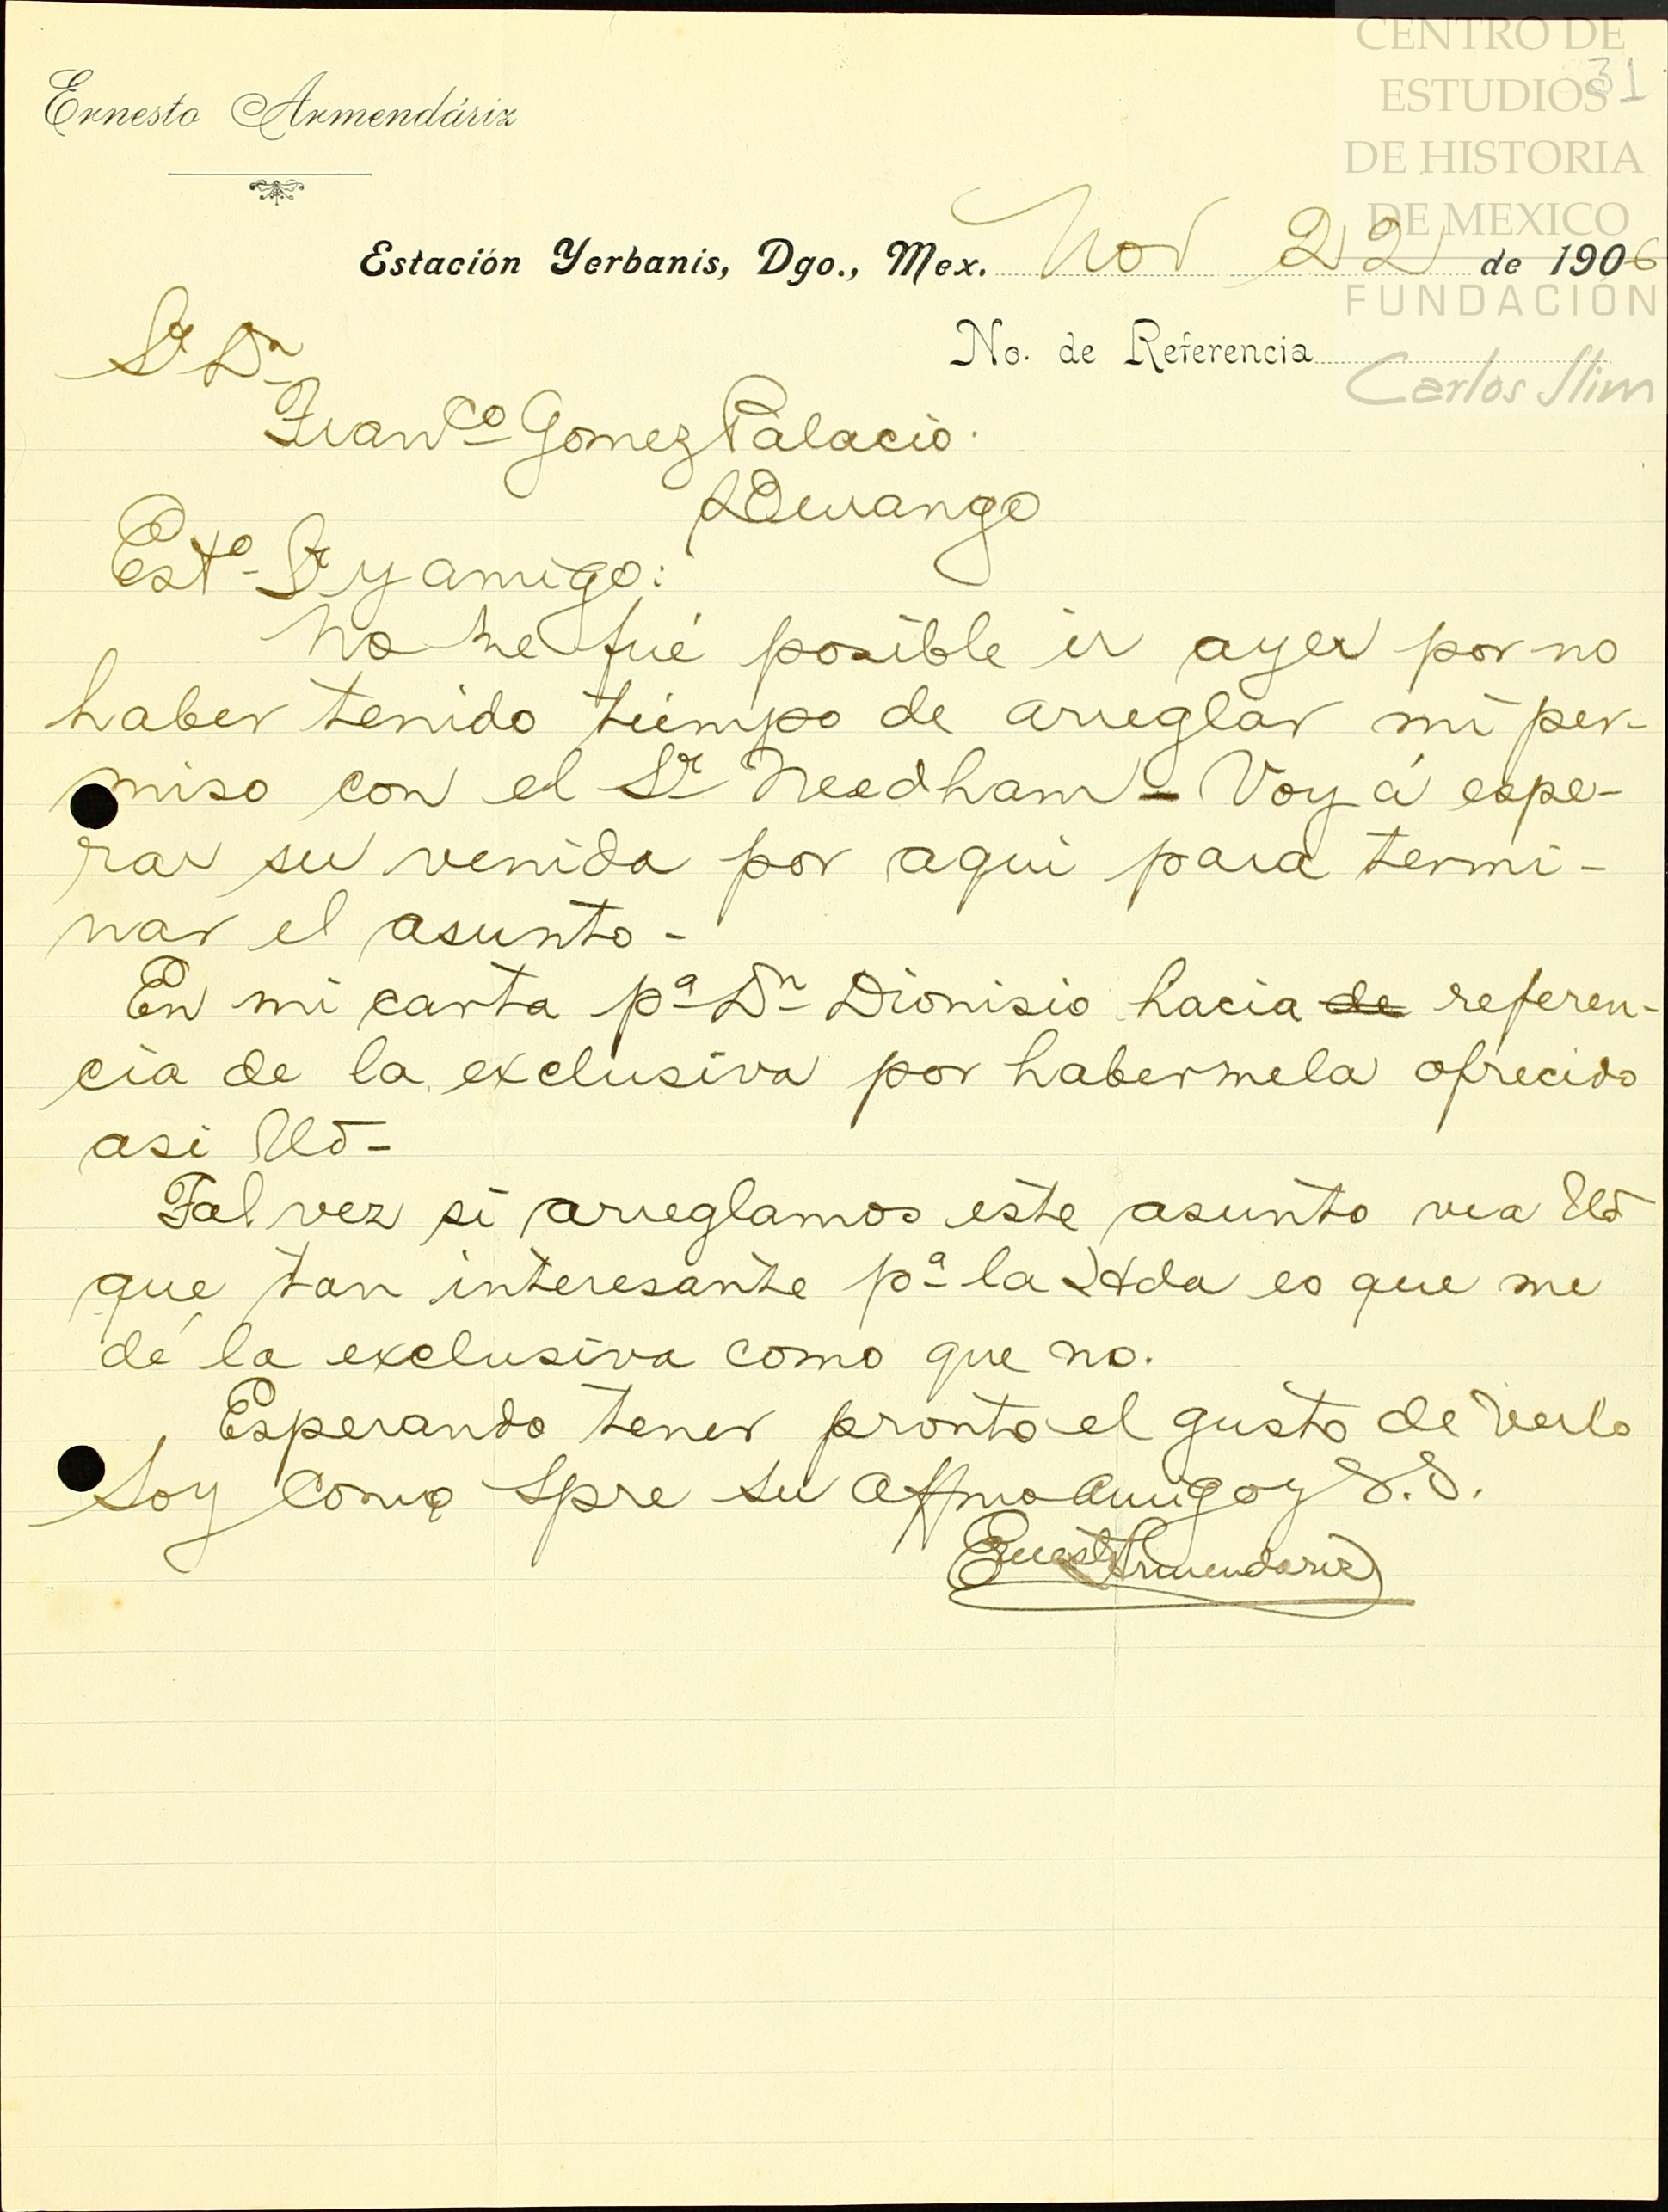 CENTRO DE
ESTUDIOS
DE HISTORIA
DE MEXICO
FUNDACIÓN
Carlos Slim
31
Ernesto Armendáriz
Estación Yerbanis, Dgo., Mex. Nov 22 de 1906
No. de Referencia
Sr Dn
Franco Gomez Palacio.
Durango
Esto Sr y amigo:
No me fué posible ir ayer por no
haber tenido tiempo de arreglar mi per-
miso con el Sr Needham - Voy á espe-
rar su venida por aqui para termi-
nar el asunto -
En mi carta pa Dn Dionisio hacia de referen-
cia de la exclusiva por habermela ofrecido
asi Ud -
Tal vez si arreglamos este asunto vea Ud
que tan interesante pa la Hda es que me
dé la exclusiva como que no.
Esperando tener pronto el gusto de verlo
Soy como spre su affmo amigo y S.S.
Ernesto Armendariz